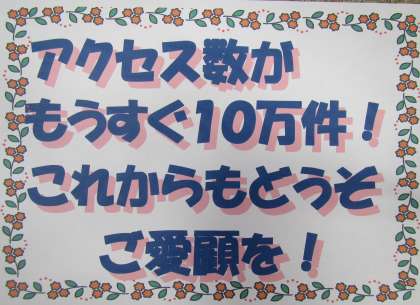 アクセス数が
もうすぐ10万件！
これからもどうぞ
ご愛顧を！